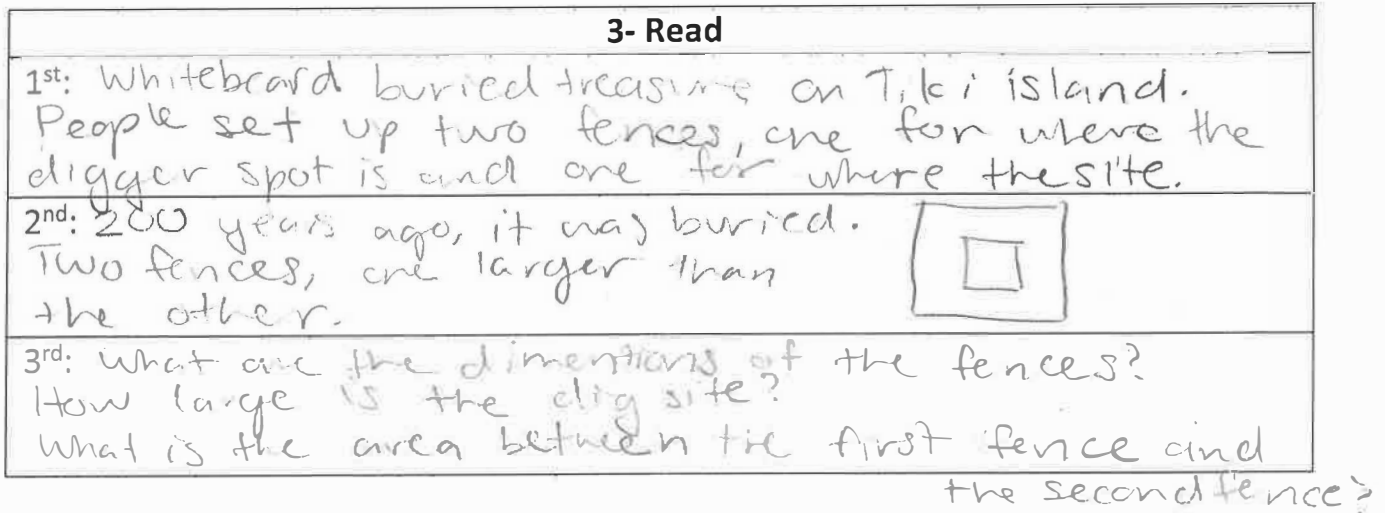 3- Read
1st: Whitebeard buried treasure on Tiki island.
People set up two fences, one for where the
digger spot is and one for where the site.
2nd: 200 years ago, it was buried.
Two fences, one larger than
the other.
3rd: What are the dimentions of the fences?
How large is the dig site?
What is the area between the first fence and
the second fence?